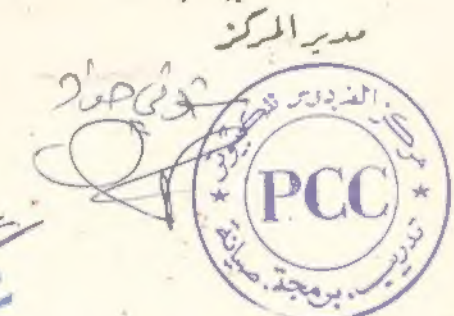 مدير المركز
مركز الفردوس للكمبيوتر
PCC
تدريب . برمجة . صيانة